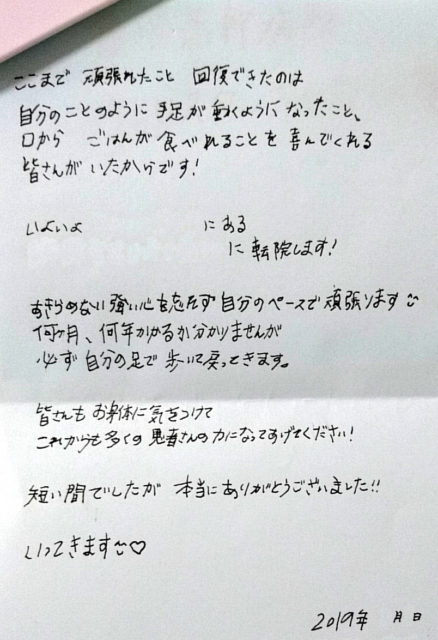 ここまで 頑張れたこと 回復できたのは
自分のことのように 手足が動くようになったこと、
口から ごはんが食べれることを喜んでくれる
皆さんがいたからです!
いよいよ にある
に転院します!
あきらめない強い心も忘れず自分のペースで頑張ります
何ヶ月、何年かかるか分かりませんが
必ず自分の足で歩いて戻ってきます。
皆さんもお身体に気をつけて
これからも多くの患者さんの力になってあげてください!
短い間でしたが 本当にありがとうございました!!
いってきます♡
2019年 月 日